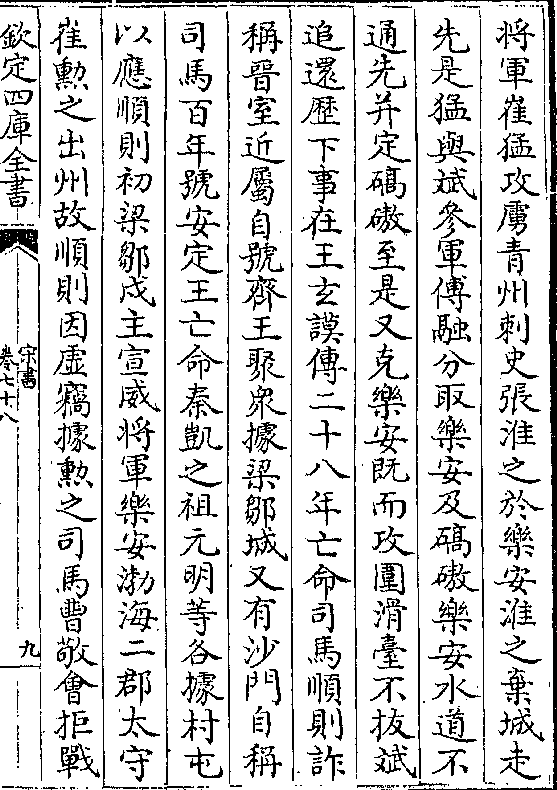 将軍崔猛攻虜青州刺史張淮之於樂安淮之棄城走
先是猛與斌參軍傅融分取樂安及碻磝樂安水道不
通先并定碻磝至是又克樂安既而攻圍滑臺不拔斌
追還歷下事在王玄謨傳二十八年亡命司馬順則詐
稱晉室近屬自號齊王聚衆據梁鄒城又有沙門自稱
司馬百年號安定王亡命秦凱之祖元明等各據村屯
以應順則初梁鄒戍主宣威將軍樂安渤海二郡太守
崔勲之出州故順則因虛竊據勲之司馬曹敬會拒戰
欽定四庫全書
宋書
卷七十八
九